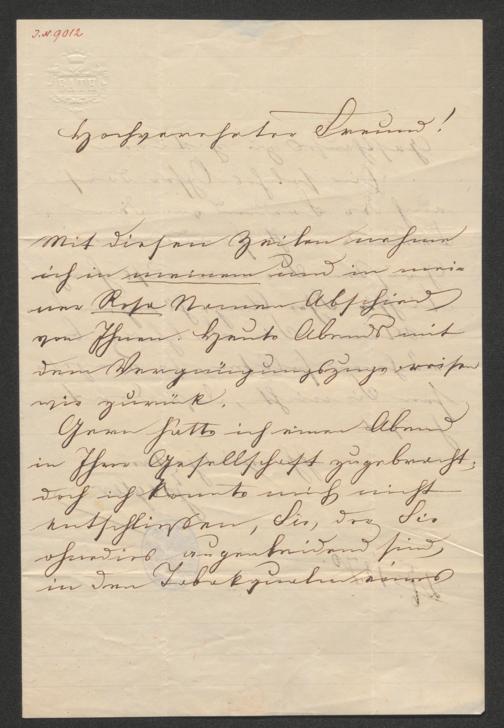 J.N. 9012
BATH
Hochverehrter Freund!
Mit diesen Zeilen nehme
ich in meinem und in mei-
ner Rosa Namen Abschied
von Ihnen. Heute Abends mit
dem Vergnügungszuge reisen
wir zurück.
Gern hätte ich einen Abend
in Ihrer Gesellschaft zugebracht,
doch ich konnte mich nicht
entschließen, Sie, der Sie
ohnedies augenleidend sind,
in den Tabakqualm eines